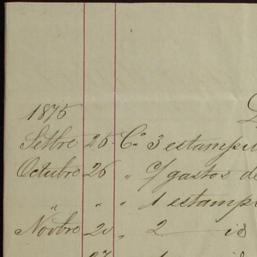 1875
Setbre 25 Co 3 estampil
Octubre 26 " C/ gastos de
" " " 1 estampi
Novbre 20 " 2 id
27 1 id